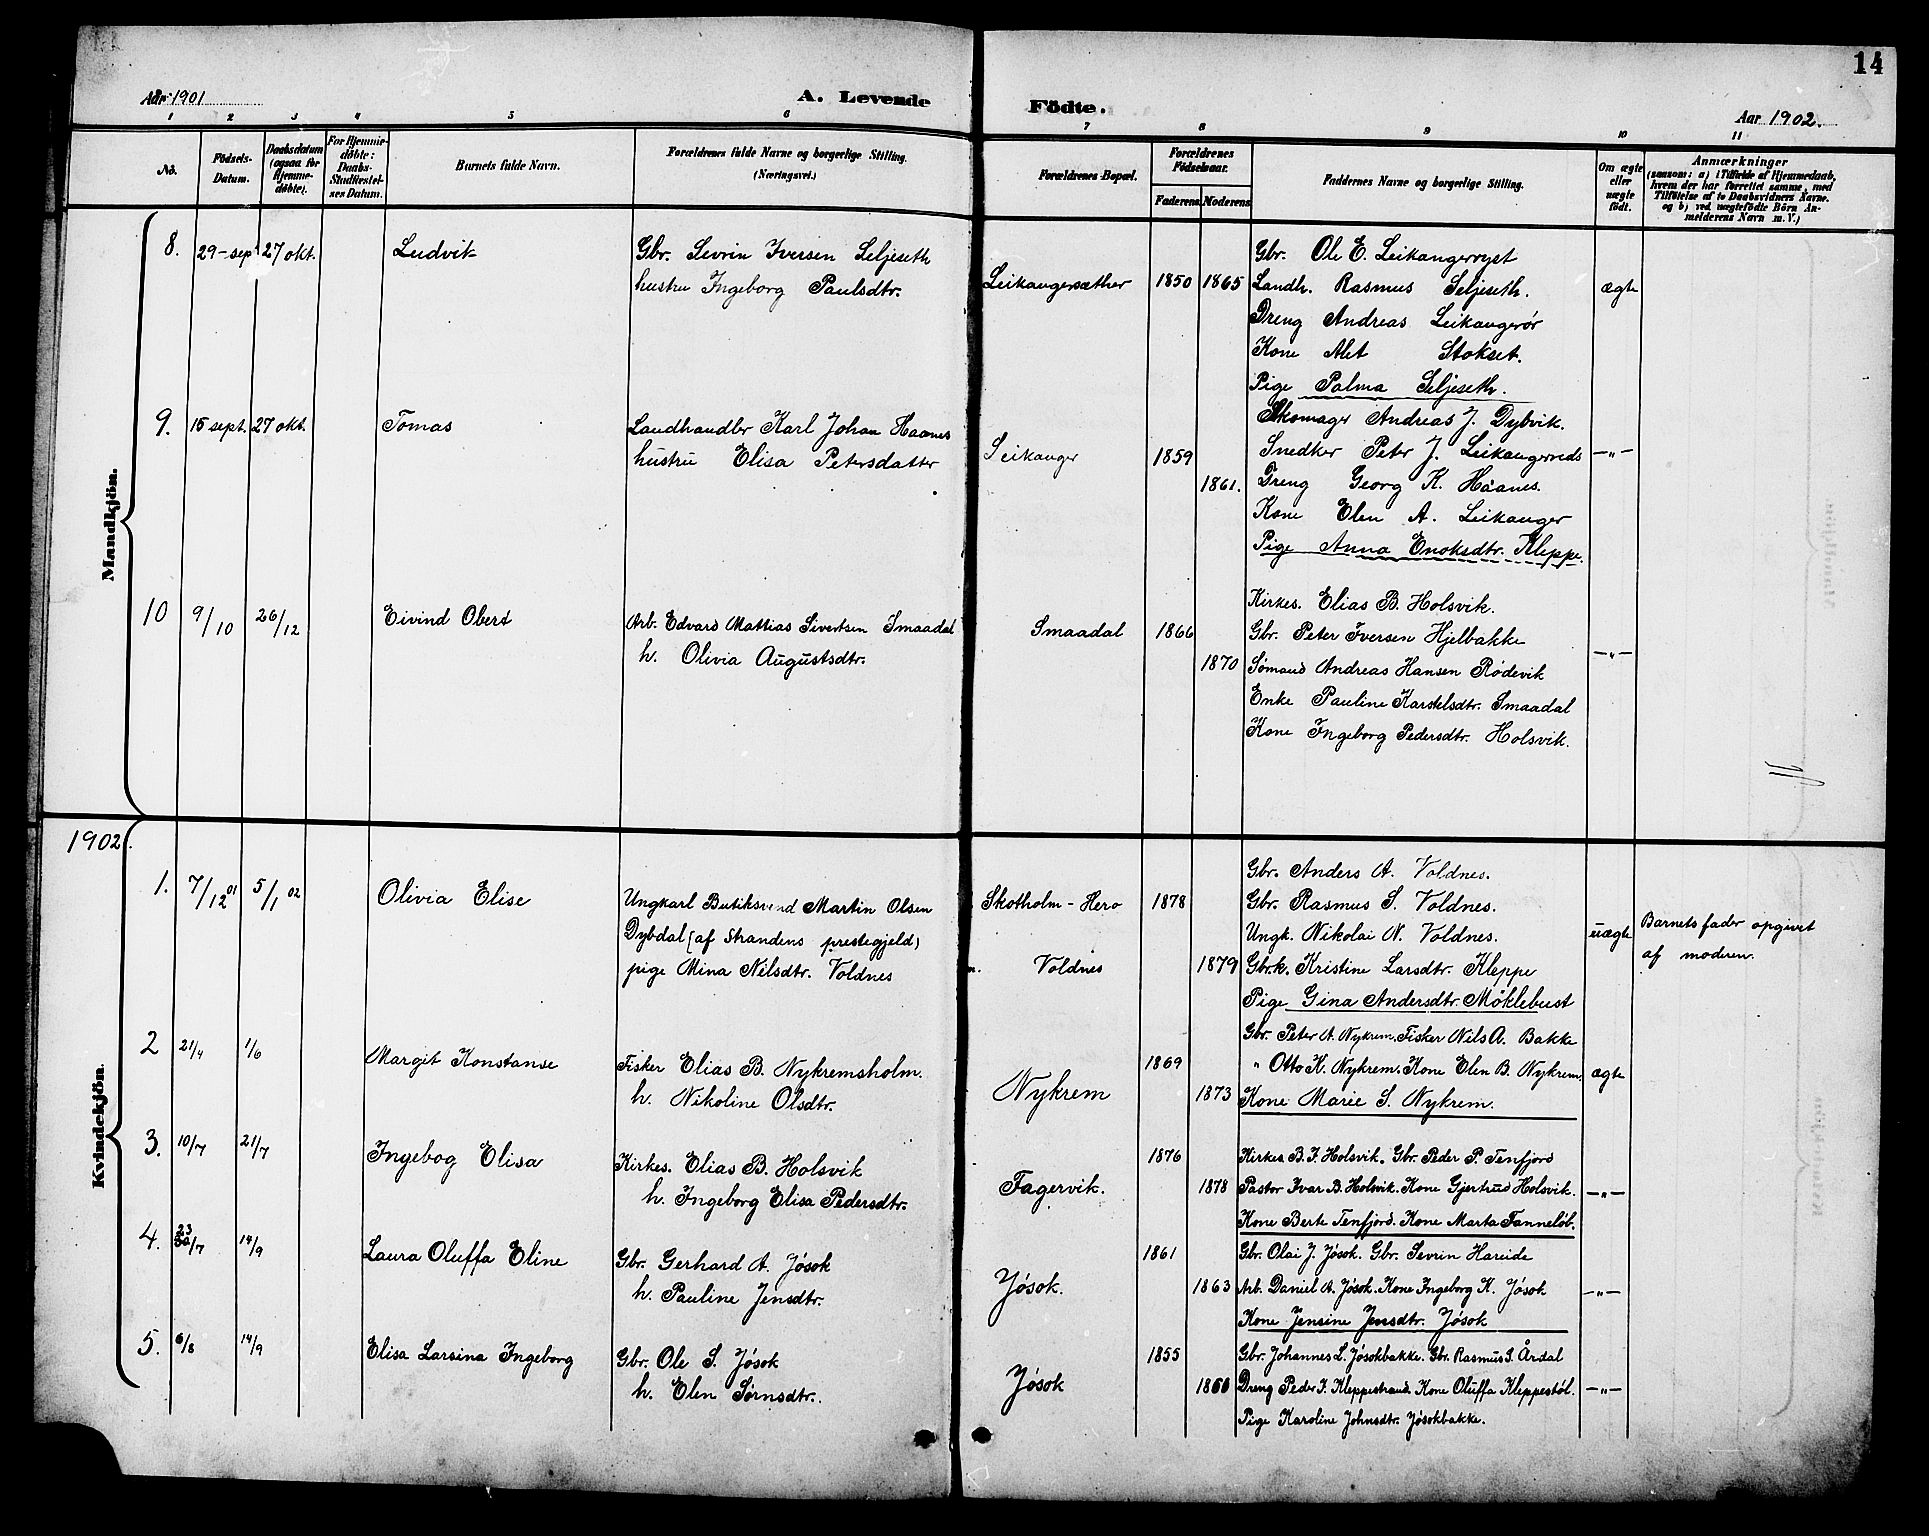 14
Aar 1901
A. Levende
Födte.
Aar 1902.
1 2 3 4 5 6 7 8 9 10 11
No.
Födsels-
Datum.
Daabsdatum
(ogsaa for
Hjemme-
döbte).
For Hjemme-
döbte:
Daabs-
Stadfæstel-
sens Datum.
Barnets fulde Navn.
Forældrenes fulde Navne og borgerlige Stilling.
(Næringsvei.)
Forældrenes Bopæl.
Forældrenes
Födselsaar.
Faderens Moderens
Faddernes Navne og borgerlige Stilling.
Om ægte
eller
uægte
födt.
Anmærkninger
(saasom: a) i Tilfælde af Hjemmedaab,
hvem der har forrettet samme, med
Tilföielse af to Daabsvidners Navne.
og b) ved uægtefödte Börn An-
melderens Navn m. V.)
Mandkjön.
8. 29-sep 27 okt. Ludvik
Gbr. Sevrin Iversen Seljeseth
hustru Ingeborg Paulsdtr.
Leikangersæther 1850 1865
Gbr. Ole E. Leikangerryst
Landh. Rasmus Seljeseth.
Dreng Andreas Leikangerör
Kone Alet Stokset.
Pige Palma Seljeseth.
ægte
9. 15 sept. 27 okt. Tomas
Landhandler Karl Johan Haanes
hustru Elisa Petersdatter
Leikanger 1859
1861.
Skomager Andreas J. Dybvik.
Snedker Peter J. Leikangerneds
Dreng Georg K. Håanes.
Kone Elen A. Leikanger
Pige Anna Enoksdtr. Kleppe.
—„—
10 9/10 26/12 Eivind Obert
Arb. Edvard Mattias Sivertsen Smaadal
h. Olivia Augustsdtr.
Smaadal 1866
1870
Kirkes. Elias B. Holsvik.
Gbr. Peter Iversen Hjelbakke
Sømand Andreas Hansen Rødevik
Enke Pauline Karstelsdtr. Smaadal
Kone Ingeborg Pedersdtr. Holsvik.
—„—
1902.
Kvindekjön.
1. 7/12 01 5/1 02 Olivia Elise
Ungkarl Butiksvend Martin Olsen
Dybdal (af Strandens prestegjeld)
pige Mina Nilsdtr. Voldnes
Skotholm - Herø 1878
Voldnes 1879
Gbr. Anders A. Voldnes.
Gbr. Rasmus S. Voldnes.
Ungk. Nikolai N. Voldnes.
Gbr.k. Kristine Larsdtr. Kleppe
Pige Gina Andersdtr. Möklebust
uægte
Barnets fader opgivet
af moderen.
2 21/4 1/6 Margit Konstanse
Fisker Elias B. Nykremsholm.
h. Nikoline Olsdtr.
Nykrem
1869
1873
Gbr. Peter A. Nykrem, Fisker Nils A. Bakke
„ Otto K. Nykrem. Kone Elen B. Nykrem.
Kone Marie S. Nykrem.
ægte
3. 10/7 21/7 Ingebog Elisa
Kirkes. Elias B. Holsvik
h. Ingeborg Elisa Pedersdtr.
Fagervik.
1876
1878
Kirkes. B. I. Holsvik. Gbr. Peder P. Tenfjord
Pastor Ivar B. Holsvik. Kone Gjertrud Holsvik.
Kone Berte Tenfjord. Kone Marta Tanneløb.
—„—
4. 23/7 14/9 Laura Oluffa Eline
Gbr. Gerhard A. Jøsok
h. Pauline Jensdtr.
Jøsok.
1861
1863
Gbr. Olai J. Jøsok. Gbr. Sevrin Hareide
Arb. Daniel A. Jøsok. Kone Ingeborg K. Jøsok
Kone Jensine Jensdtr. Jøsok
—„—
5. 6/8 14/9 Elisa Larsina Ingeborg
Gbr. Ole S. Jøsok
h. Elen Sørnsdtr.
Jøsok
1855
1860
Gbr. Johannes L. Jøsokbakke. Gbr. Rasmus S. Årdal
Dreng Peder I. Kleppestrand. Kone Oluffa Kleppestøl.
Pige Karoline Johnsdtr. Jøsokbakke.
—„—